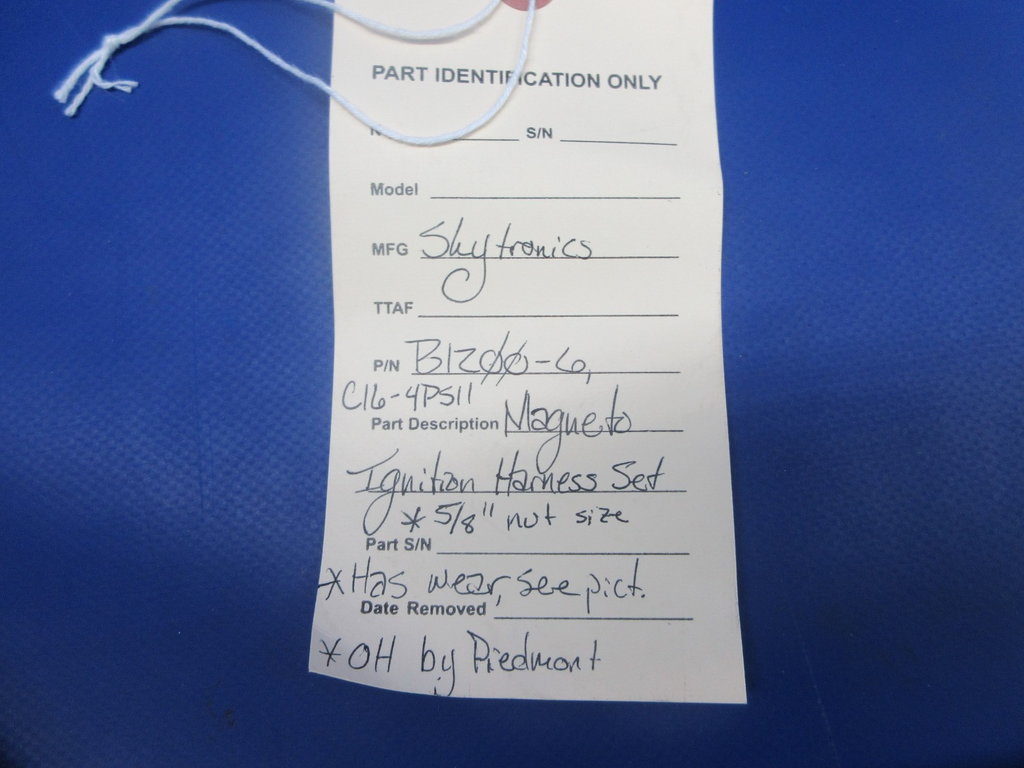 PART IDENTIFICATION ONLY
S/N
Model
MFG Skytronics
TTAF
P/N B1200-6,
C16-4PS11
Part Description Magneto
Ignition Harness Set
* 5/8" nut size
Part S/N
* Has wear, see pict.
Date Removed
* OH by Piedmont